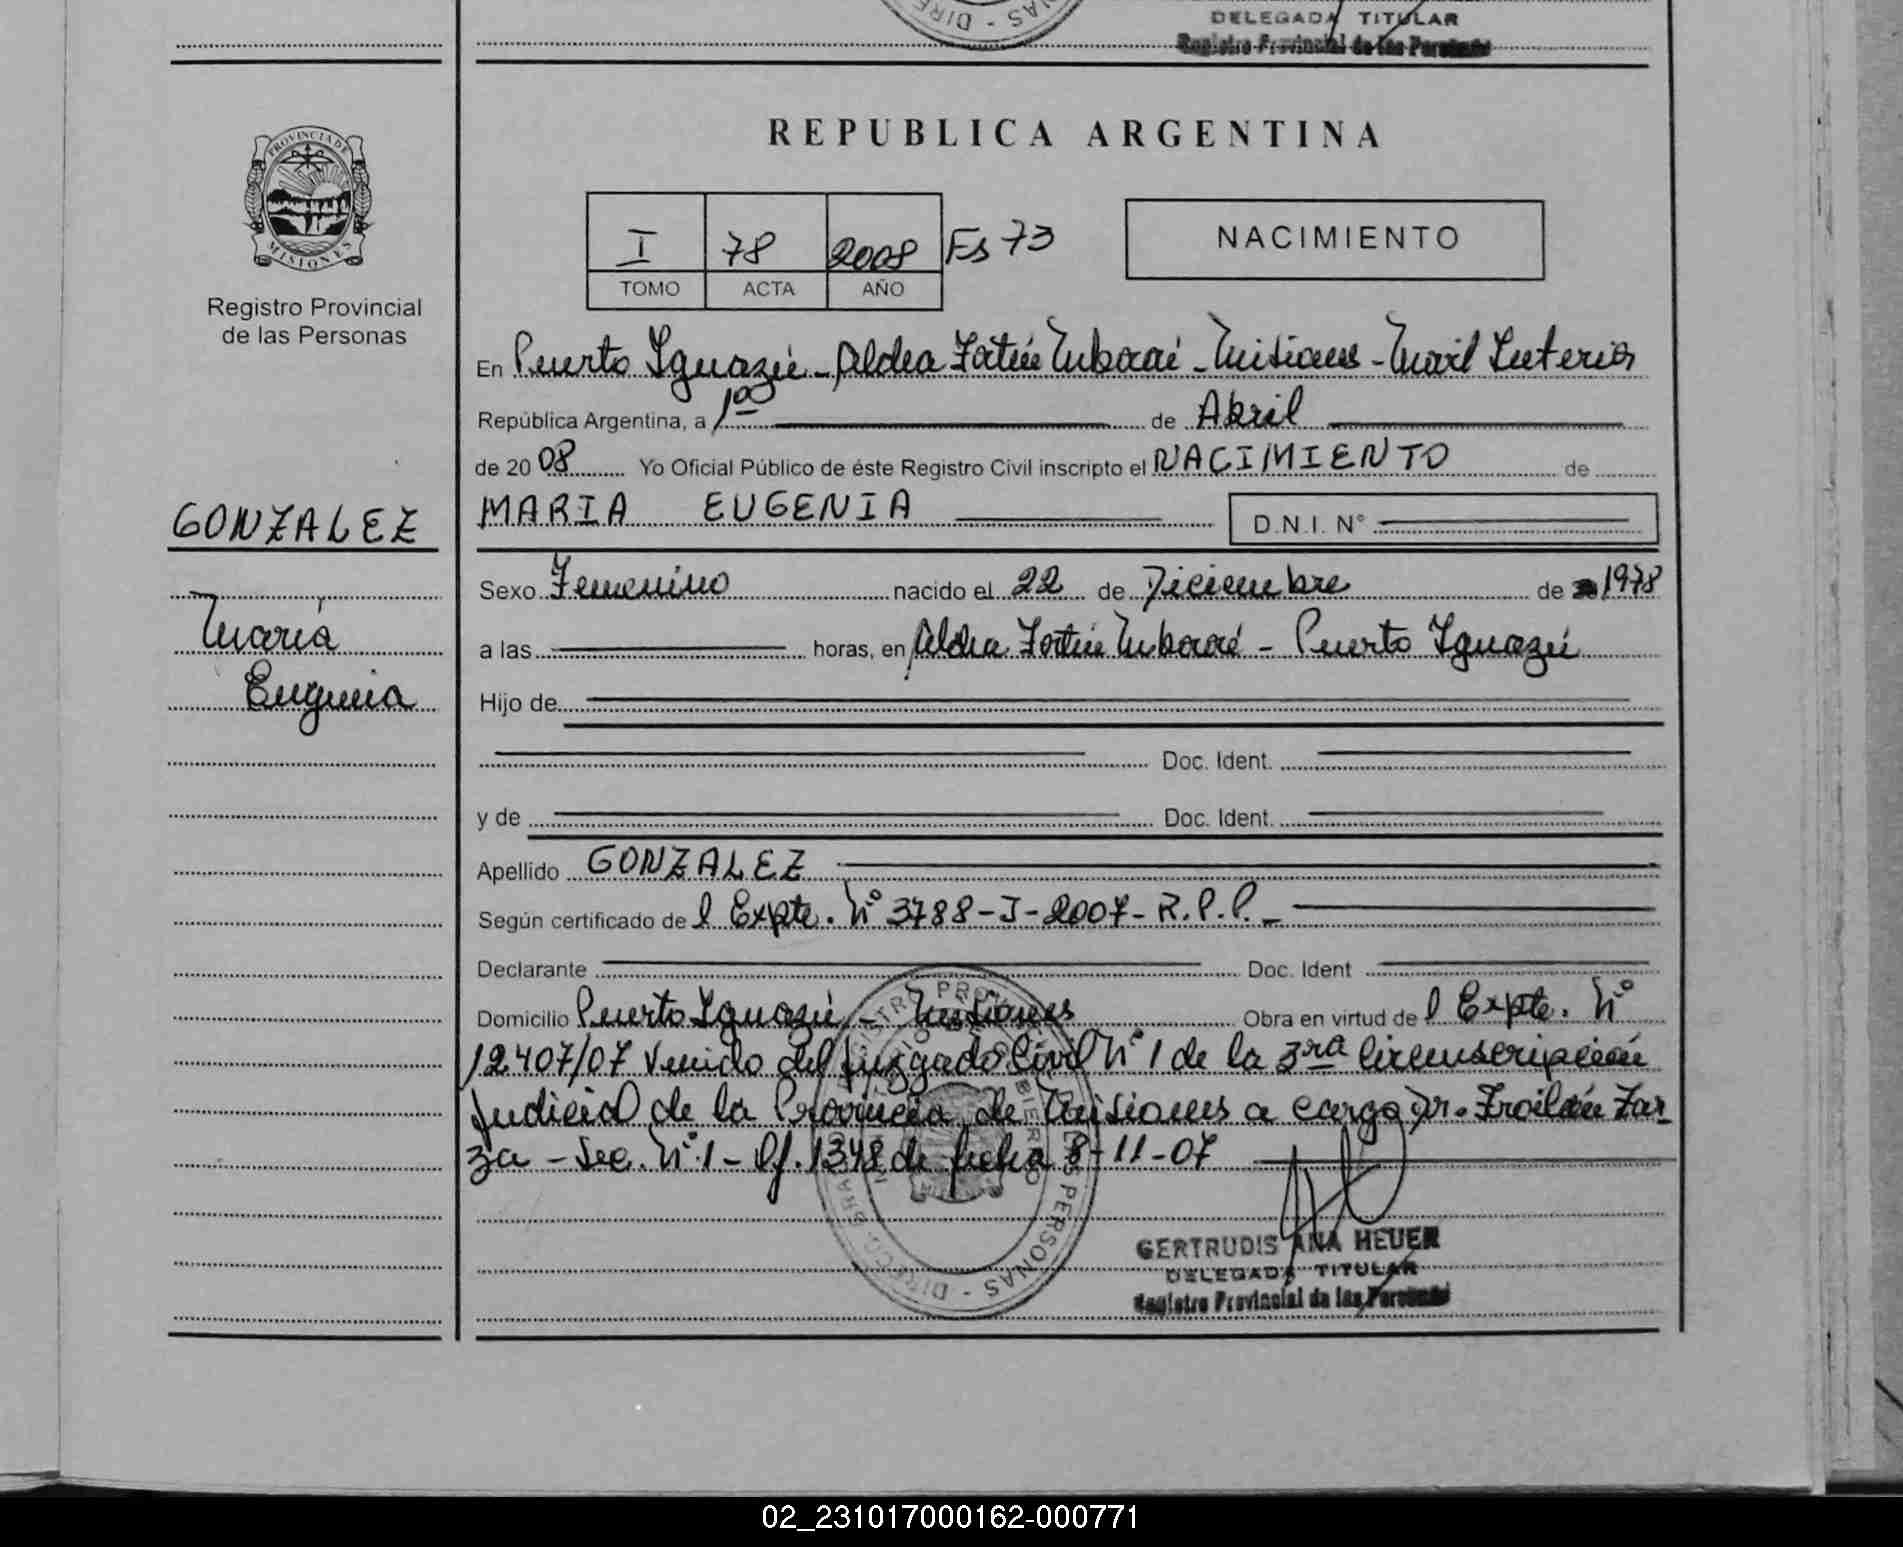 DELEGADA TITULAR
Registro Provincial de las Personas
PROVINCIA DE
MISIONES
Registro Provincial
de las Personas
REPUBLICA ARGENTINA
I 78 2008 Fs 73
TOMO ACTA AÑO
NACIMIENTO
En Puerto Iguazú - Aldea Fortín Mbororé - Misiones - Movil Interior
República Argentina, a 1ro de Abril
de 2008 Yo Oficial Público de éste Registro Civil inscripto el NACIMIENTO de
GONZALEZ
MARIA EUGENIA D.N.I. N°
Sexo Femenino nacido el 22 de Diciembre de 1978
María
a las horas, en Aldea Fortín Mbororé - Puerto Iguazú
Eugenia
Hijo de
Doc. Ident.
y de Doc. Ident.
Apellido GONZALEZ
Según certificado de l Expte. N° 3788-I-2007-R.P.P.
Declarante Doc. Ident
Domicilio Puerto Iguazú - Misiones Obra en virtud de l Expte. N°
12407/07 venido del Juzgado Civil N° 1 de la 3ra Circunscripción
Judicial de la Provincia de Misiones a cargo Dr. Froilán Zar
za - Sec. N° 1 - Of. 1348 de fecha 8-11-07
GERTRUDIS ANA HEUER
DELEGADA TITULAR
Registro Provincial de las Personas
02_231017000162-000771